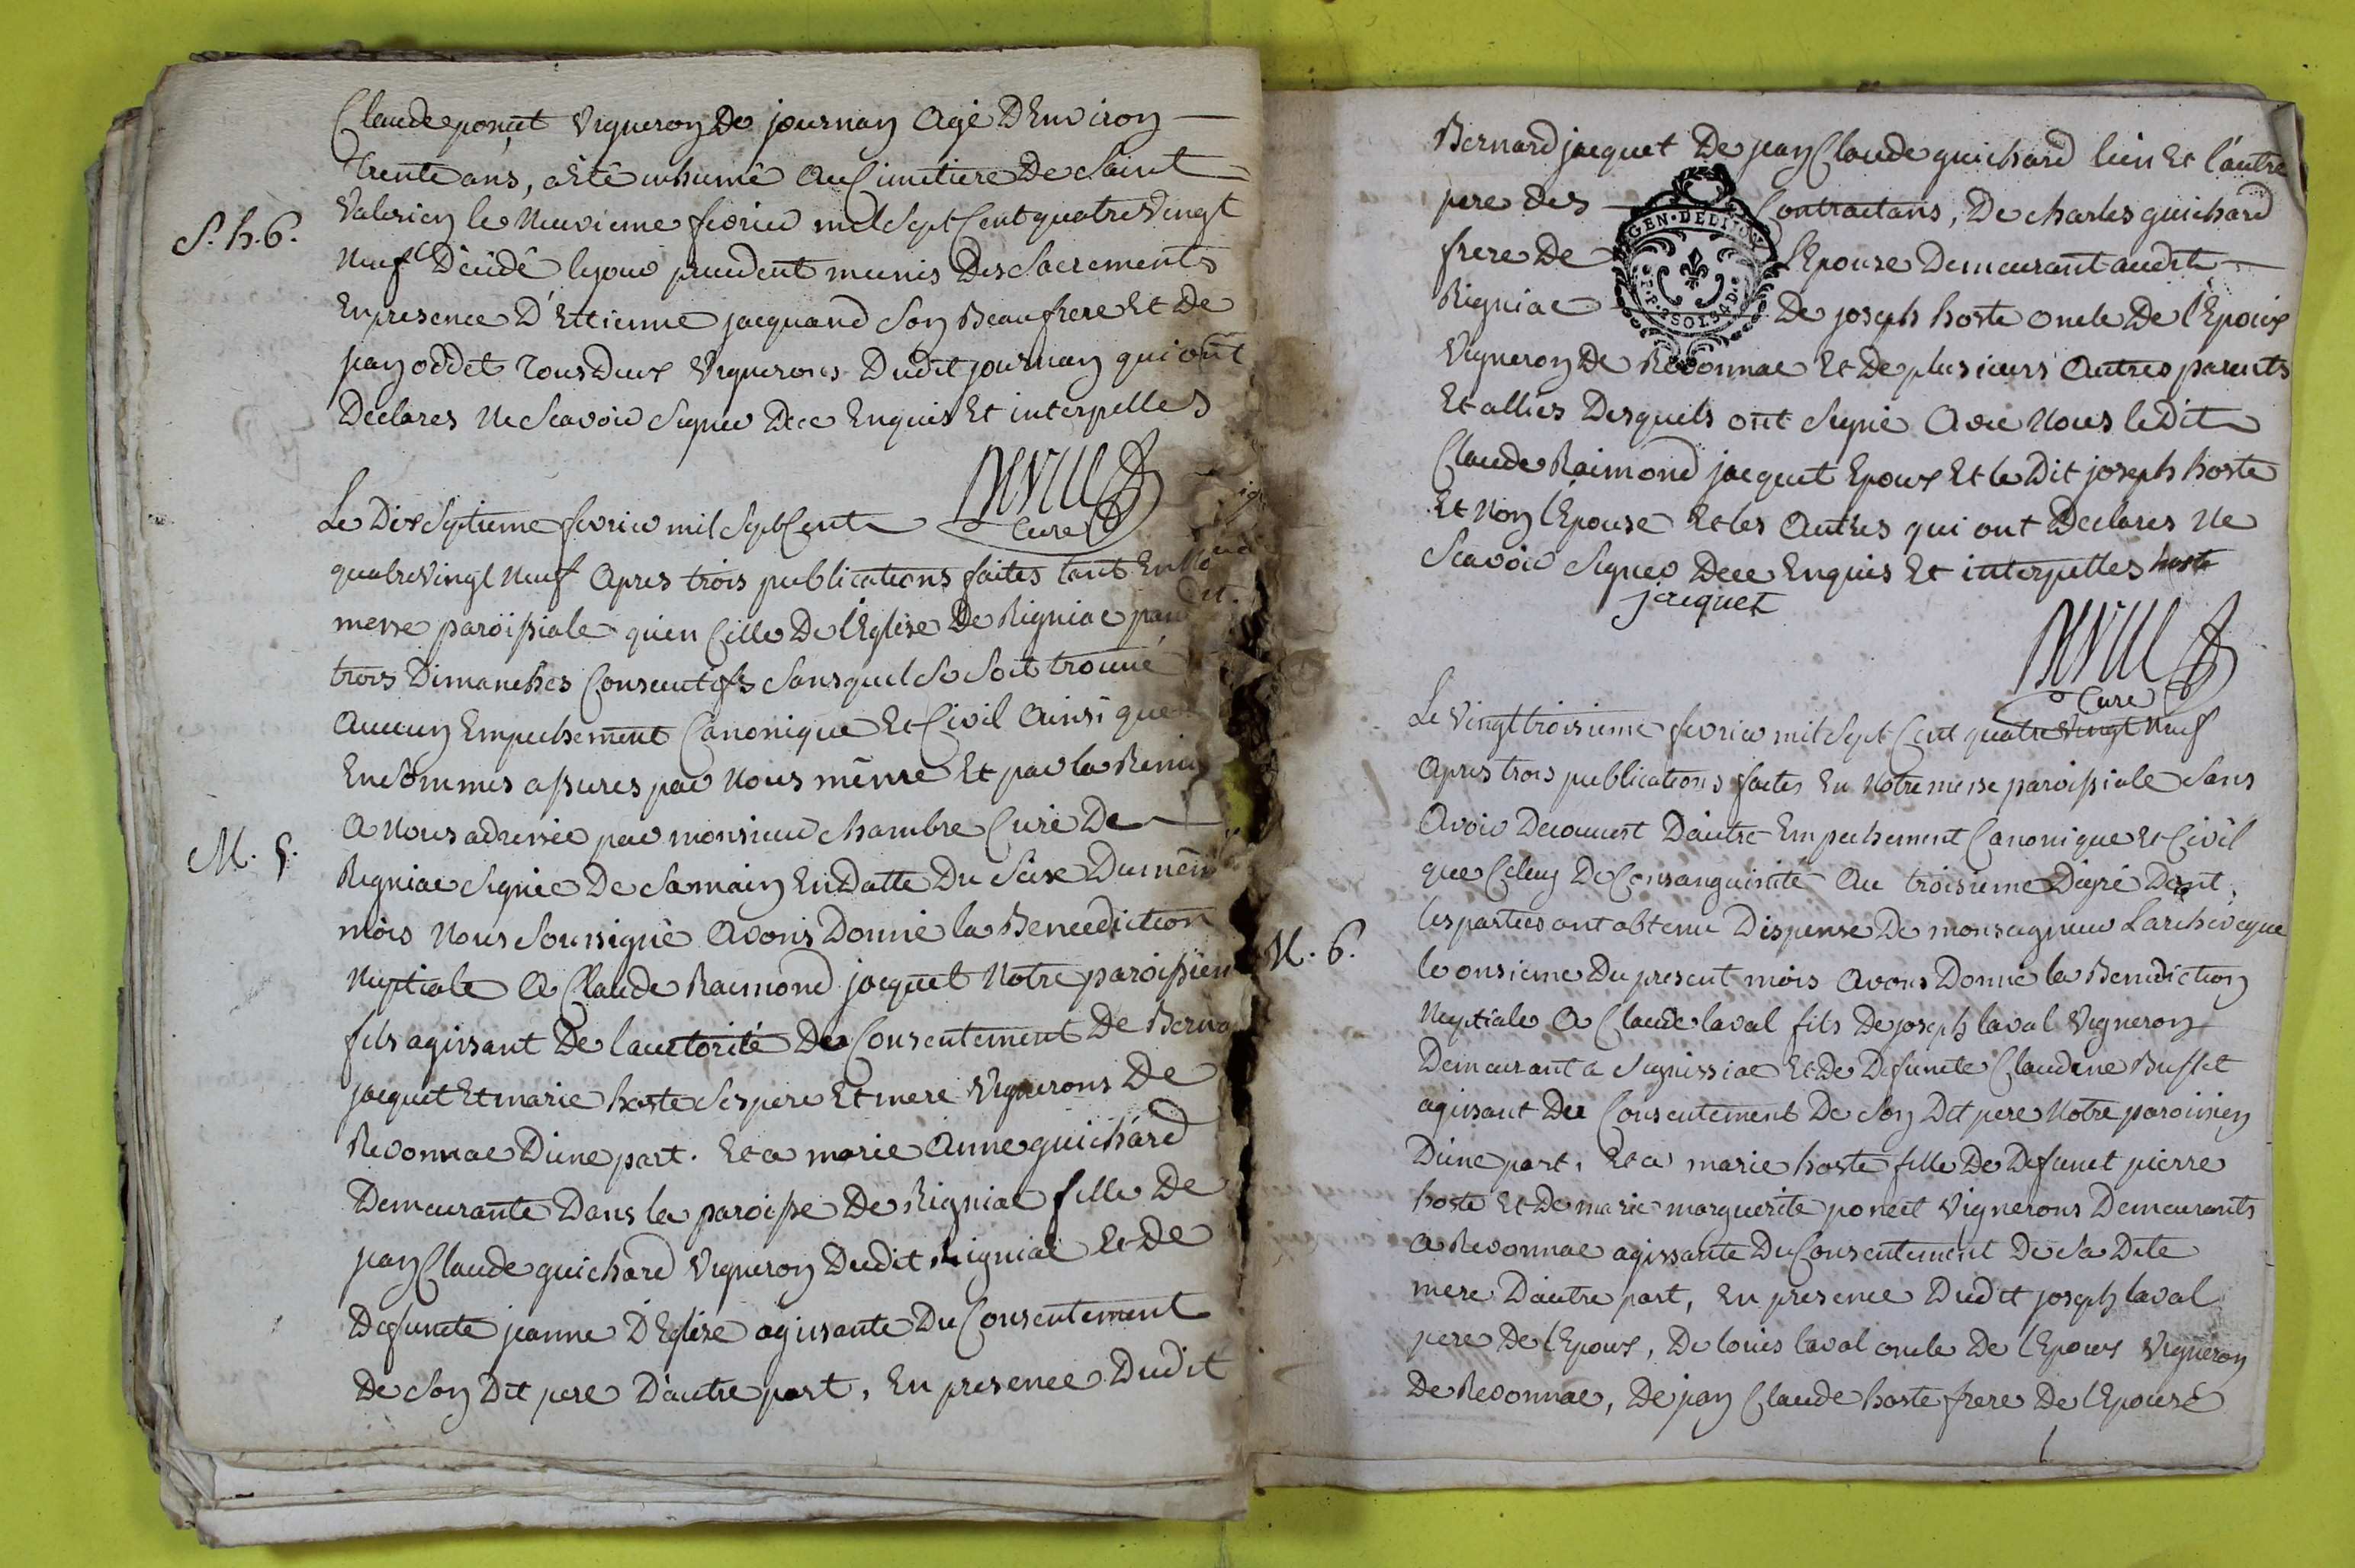 Claude poncet Vigneron De journan Agé D'Environ
trente ans, a Eté inhumé Au Cimetiere De Saint
Valerien le Neuvieme fevrier mil Sept Cent quatre Vingt
S. h. 6.
Neuf Décédé le jour precedent munis Des Sacrements
En presence D'Ettienne jacquand Son Beaufrere Et De
jean oddet tous deux Vignerons Dudit journan qui ont
Declares Ne Scavoir Signer De ce Enquis Et interpelles
Curé
Le Dix Septieme fevrier mil Sept Cent
quatre Vingt Neuf Apres trois publications faites tant En No
messe paroissiale qu'en Celle De l'Eglise De Rigniac par
trois Dimanches Consecutifs Sans quil Se Soit trouvé
Aucun Empechement Canonique Et Civil Ainsi que
En Sommes assures par Nous même Et par la Remis
A Nous adressée par monsieur Chambre Curé De
M. 5.
Rigniac Signée De Sa main En Datte Du Seize Du mêm
mois Nous Soussigné Avons Donné la Benediction
Nuptiale A Claude Raimond jacquet Notre paroissien
fils agissant De l'auctorité De Consentement De Berna
jacquet Et marie hoste Ses pere Et mere Vignerons De
Revonnac D'une part. Et a marie Anne guichard
Demeurante Dans la paroisse De Rigniac fille De
jean Claude guichard Vigneron Dudit Rigniac Et De
Defuncte jeanne D'Eglise agissante Du Consentement
De Son Dit pere D'autre part, En presence Dudit
Bernard jacquet De jean Claude guichard l'un Et l'autre
pere des Contractans, De charles guichard
GEN. DE LYON
frere De l'Epouse Demeurant audit
Rigniac De joseph hoste oncle De l'Epoux
Vigneron De Revonnac Et De plusieurs Autres parents
Et alliés Desquels ont Signé Avec Nous le Dit
Claude Raimond jacquet Epoux Et le Dit joseph hoste
Et Non l'Epouse Et les Autres qui ont Declares Ne
Scavoir Signer De ce Enquis Et interpelles hoste
jacquet
Curé
Le Vingt troisieme fevrier mil Sept Cent quatre Vingt Neuf
Apres trois publications faites En Notre messe paroissiale Sans
Avoir Decouvert D'autre Empechement Canonique Et Civil
que Celuy De Consanguinité Au troisieme Degré Dont
les parties ont obtenu Dispense De monseigneur L'archeveque
M. 6.
le onsieme Du present mois Avons Donné la Benediction
Nuptiale A Claude laval fils De joseph laval Vigneron
Demeurant a Senissiac Et De Defuncte Claudine Buffet
agissant Du Consentement De Son Dit pere Notre paroissien
D'une part, Et a marie hoste fille De Defunct pierre
hoste Et De marie marguerite poncet Vignerons Demeurants
A Revonnac agissante Du Consentement De Sa Dite
mere D'autre part, En presence Dudit joseph laval
pere De l'Epoux, De louis laval oncle De l'Epoux Vigneron
De Revonnac, De jean Claude hoste frere De l'Epouse